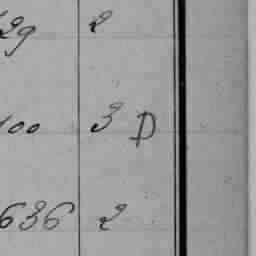 29 2
100 3 D
636 2